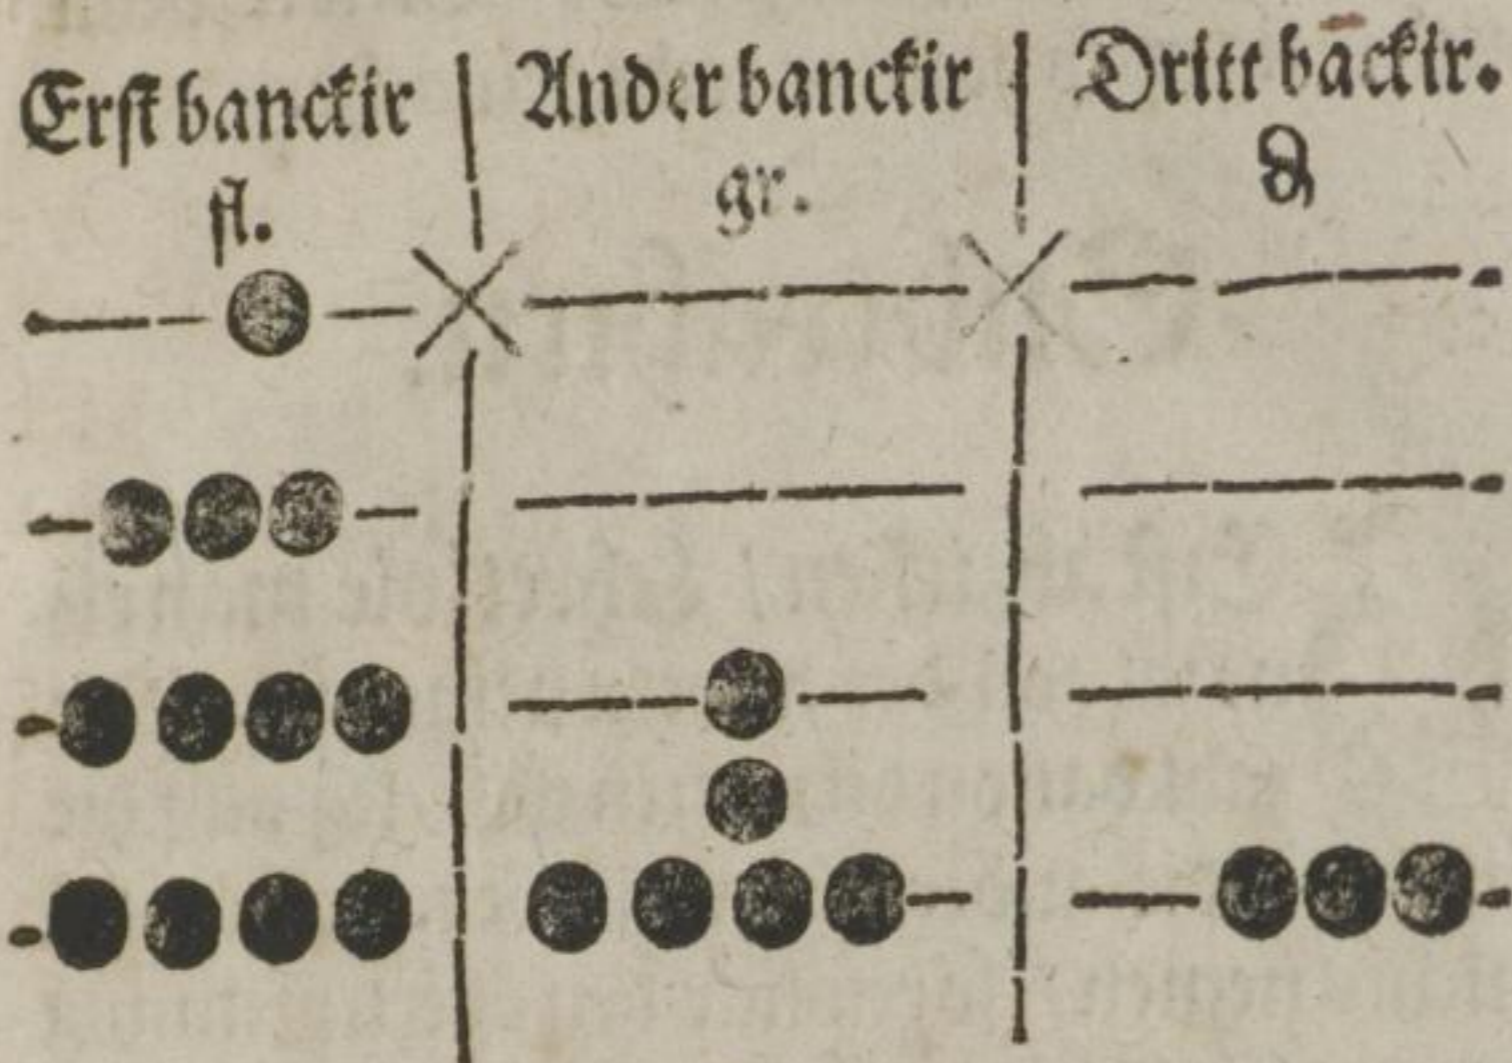 Erst banckir
fl.
Ander banckir
gr.
Dritt bāckir.
₰